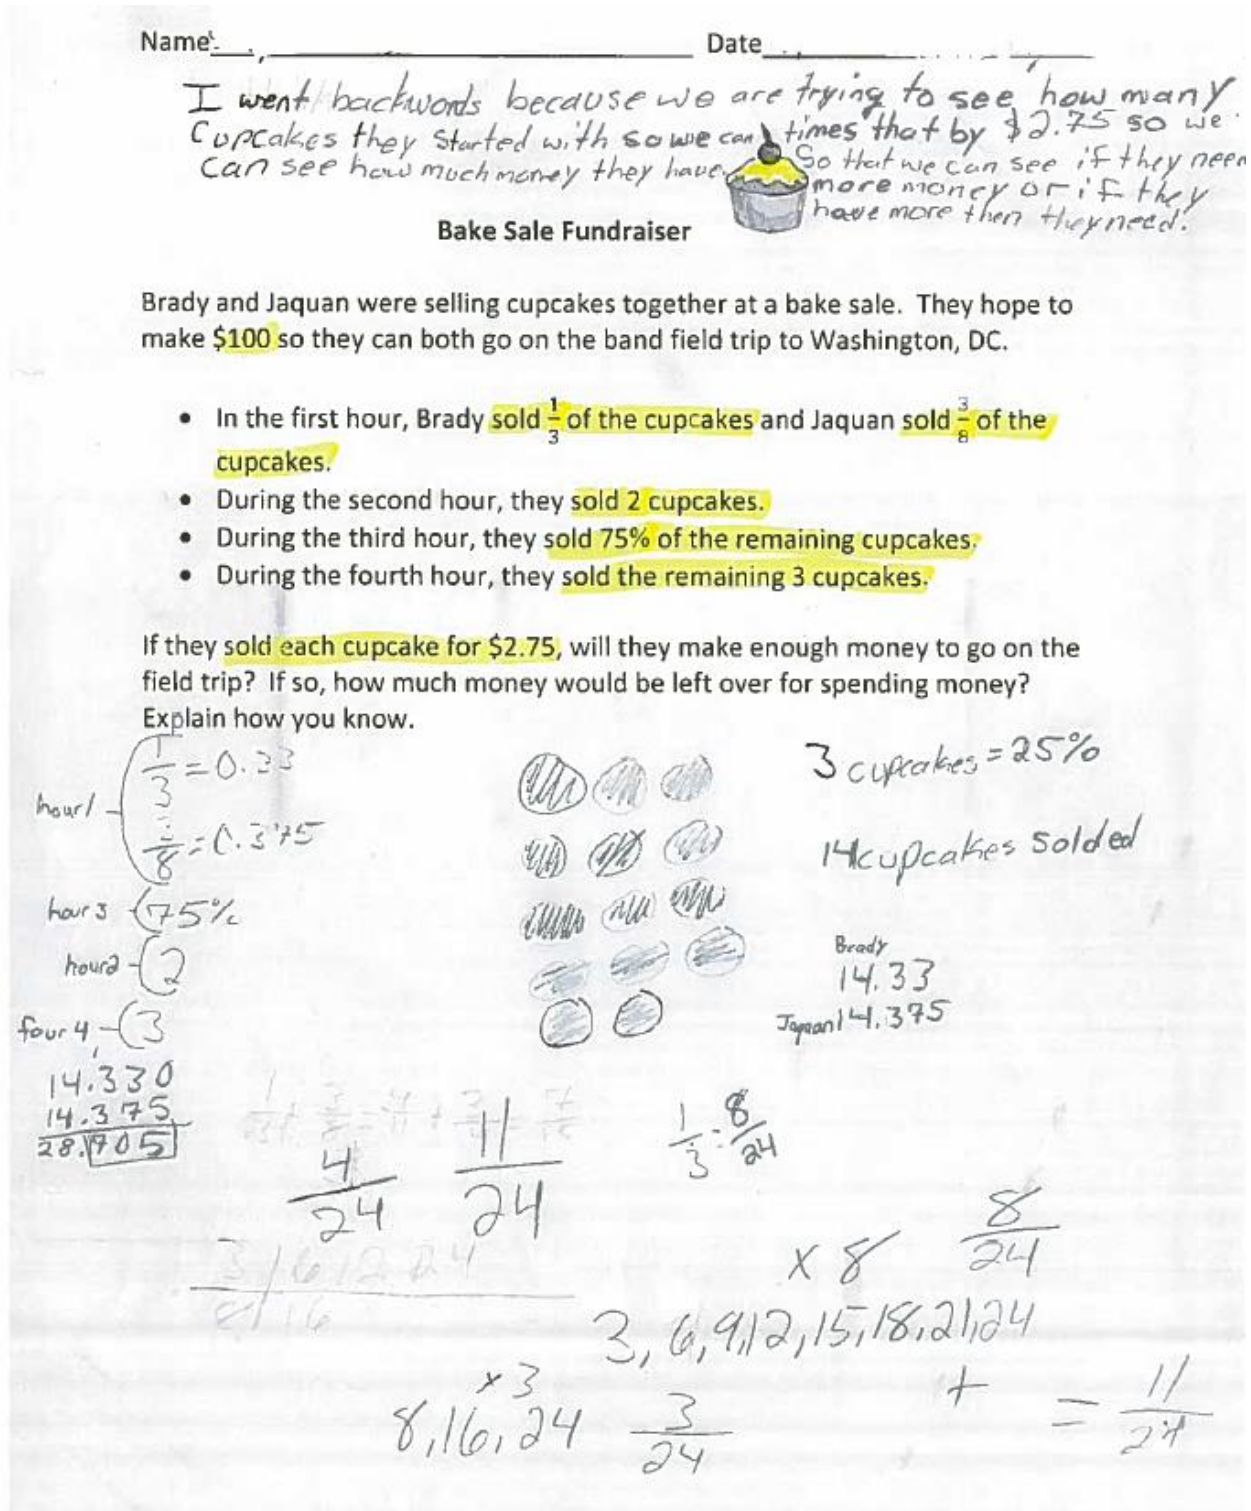 Name Date
I went backwords because we are trying to see how many
Cupcakes they Started with so we can times that by $2.75 so we
can see how much money they have. So that we can see if they need
more money or if they
have more then they need.
Bake Sale Fundraiser
Brady and Jaquan were selling cupcakes together at a bake sale. They hope to
make $100 so they can both go on the band field trip to Washington, DC.
• In the first hour, Brady sold 1/3 of the cupcakes and Jaquan sold 3/8 of the
cupcakes.
• During the second hour, they sold 2 cupcakes.
• During the third hour, they sold 75% of the remaining cupcakes.
• During the fourth hour, they sold the remaining 3 cupcakes.
If they sold each cupcake for $2.75, will they make enough money to go on the
field trip? If so, how much money would be left over for spending money?
Explain how you know.
hour 1 1/3 = 0.33
3/8 = 0.375
hour 3 75%
hour 2 2
four 4 3
3 cupcakes = 25%
14 cupcakes solded
Brady
14.33
Jaquan 14.375
1
14.330
14.375
28.705
4/24 11/24
1/3 = 8/24
x 8 8/24
3, 6, 9, 12, 15, 18, 21, 24
x 3
8, 16, 24 3/24
+ = 11/24